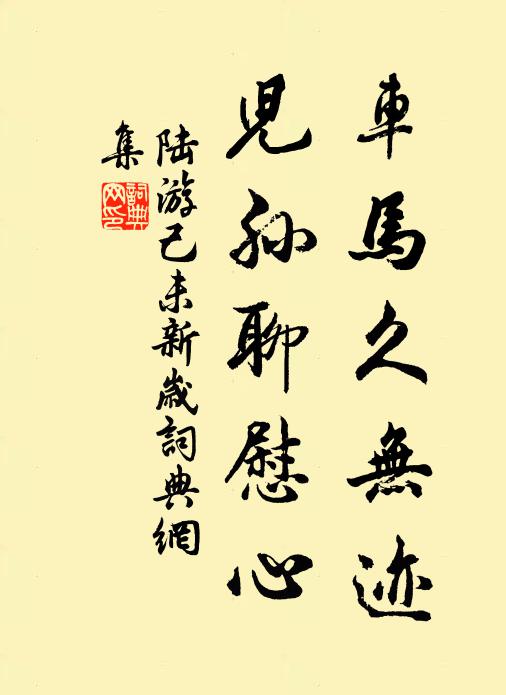 車馬久無迹
兒孫聊慰心
陸游己未新歲詞典網
集
詞典
网印